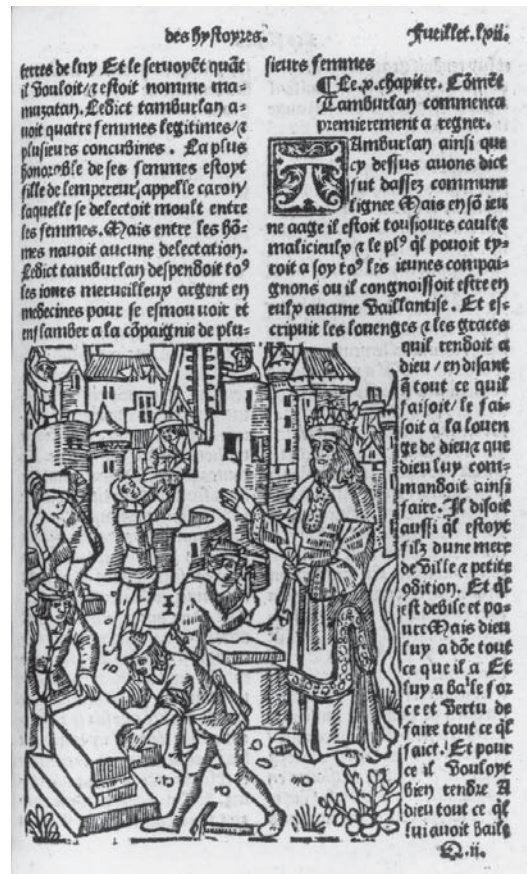 des hystoyres.
Fueillet. lvii.
terres de luy Et le servoyēt quāt
il vouloit/⁊ estoit nomme ma-
muzatan. Ledict tamburlan a-
voit quatre femmes legitimes/⁊
plusieurs concubines. La plus
honorable de ses femmes estoyt
fille de lempereur/ appelle carony
laquelle se delectoit moult entre
les femmes. Mais entre les hō-
mes navoit aucune delectation.
Ledict tamburlan despendoit to⁹
les iours merveilleux argent en
medecines pour se esmouvoir et
enflamber a la cōpaignie de plu-
sieurs femmes
¶ Le.x.chapitre. Cōmēt
Tamburlan commenca
premierement a regner.
TAmburlan ainsi que
cy dessus avons dict
fut dassez commune
lignee Mais en sō ieu
ne aage il estoit tousiours cault⁊
malicieulx ⁊ le pl⁹ ql pouoit ty-
roit a soy to⁹ les ieunes compai-
gnons ou il congnoissoit estre en
eulx aucune vaillantise. Et es-
cripvit les louenges ⁊ les graces
quil rendoit a
dieu / en disant
q̄ tout ce quil
faisoit/ le fai-
soit a la louen
ge de dieu⁊ que
dieu luy com-
mandoit ainsi
faire. Il disoit
aussi ql̄ estoyt
filz dune mere
de ville ⁊ petite
ꝯdition. Et ql̄
est debile et po-
ure Mais dieu
luy a dōe tout
ce que il a Et
luy a baˡle for
ce et vertu de
faire tout ce ql̄
faict. Et pour
ce il vouloyt
bien rendre A
dieu tout ce ql̄
lui avoit baile
Q.ii.